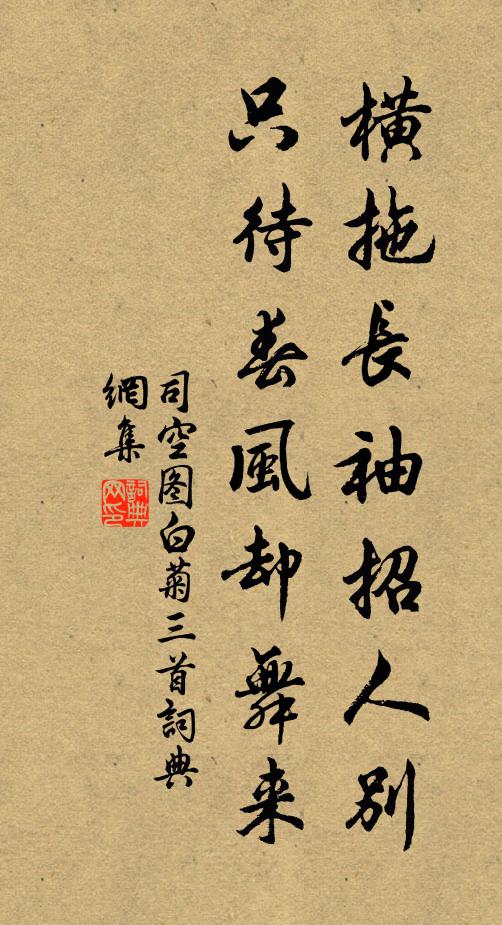 橫拖長袖招人別
只待春風却舞来
司空图白菊三首詞典
網集
詞典
网印